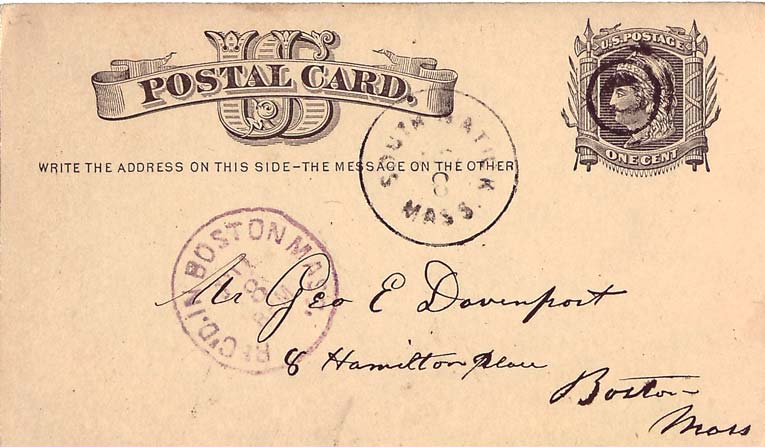 US
POSTAL CARD.
U.S. POSTAGE
ONE CENT
WRITE THE ADDRESS ON THIS SIDE–THE MESSAGE ON THE OTHER
SOUTH NATICK
8
MASS.
REC'D. IN BOSTON MASS.
8
Mr Geo E Davenport
8 Hamilton place
Boston
Mass